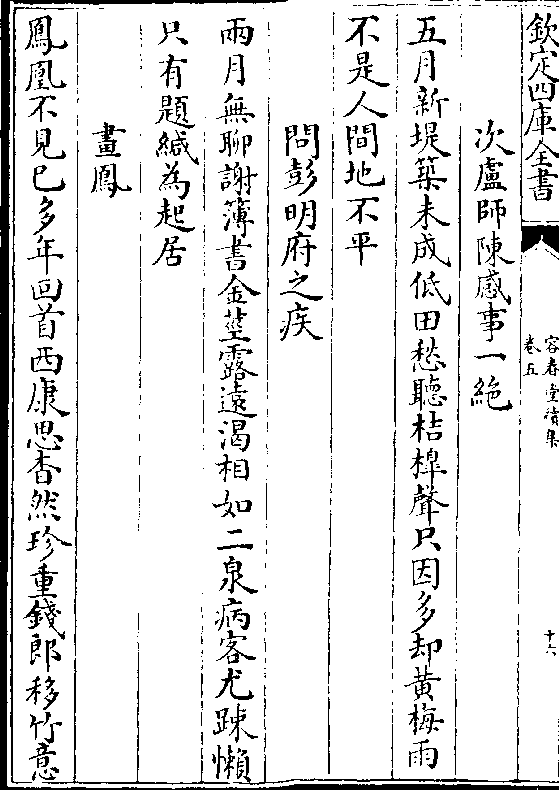 欽定四庫全書
容春堂續集
卷五
十六
次盧師陳感事一絶
五月新堤築未成低田愁聽桔橰聲只因多却黄梅雨
不是人間地不平
問彭明府之疾
兩月無聊謝簿書金莖露遠渴相如二泉病客尤踈懶
只有題緘為起居
畫鳳
鳳凰不見已多年回首西康思杳然珍重錢郎移竹意